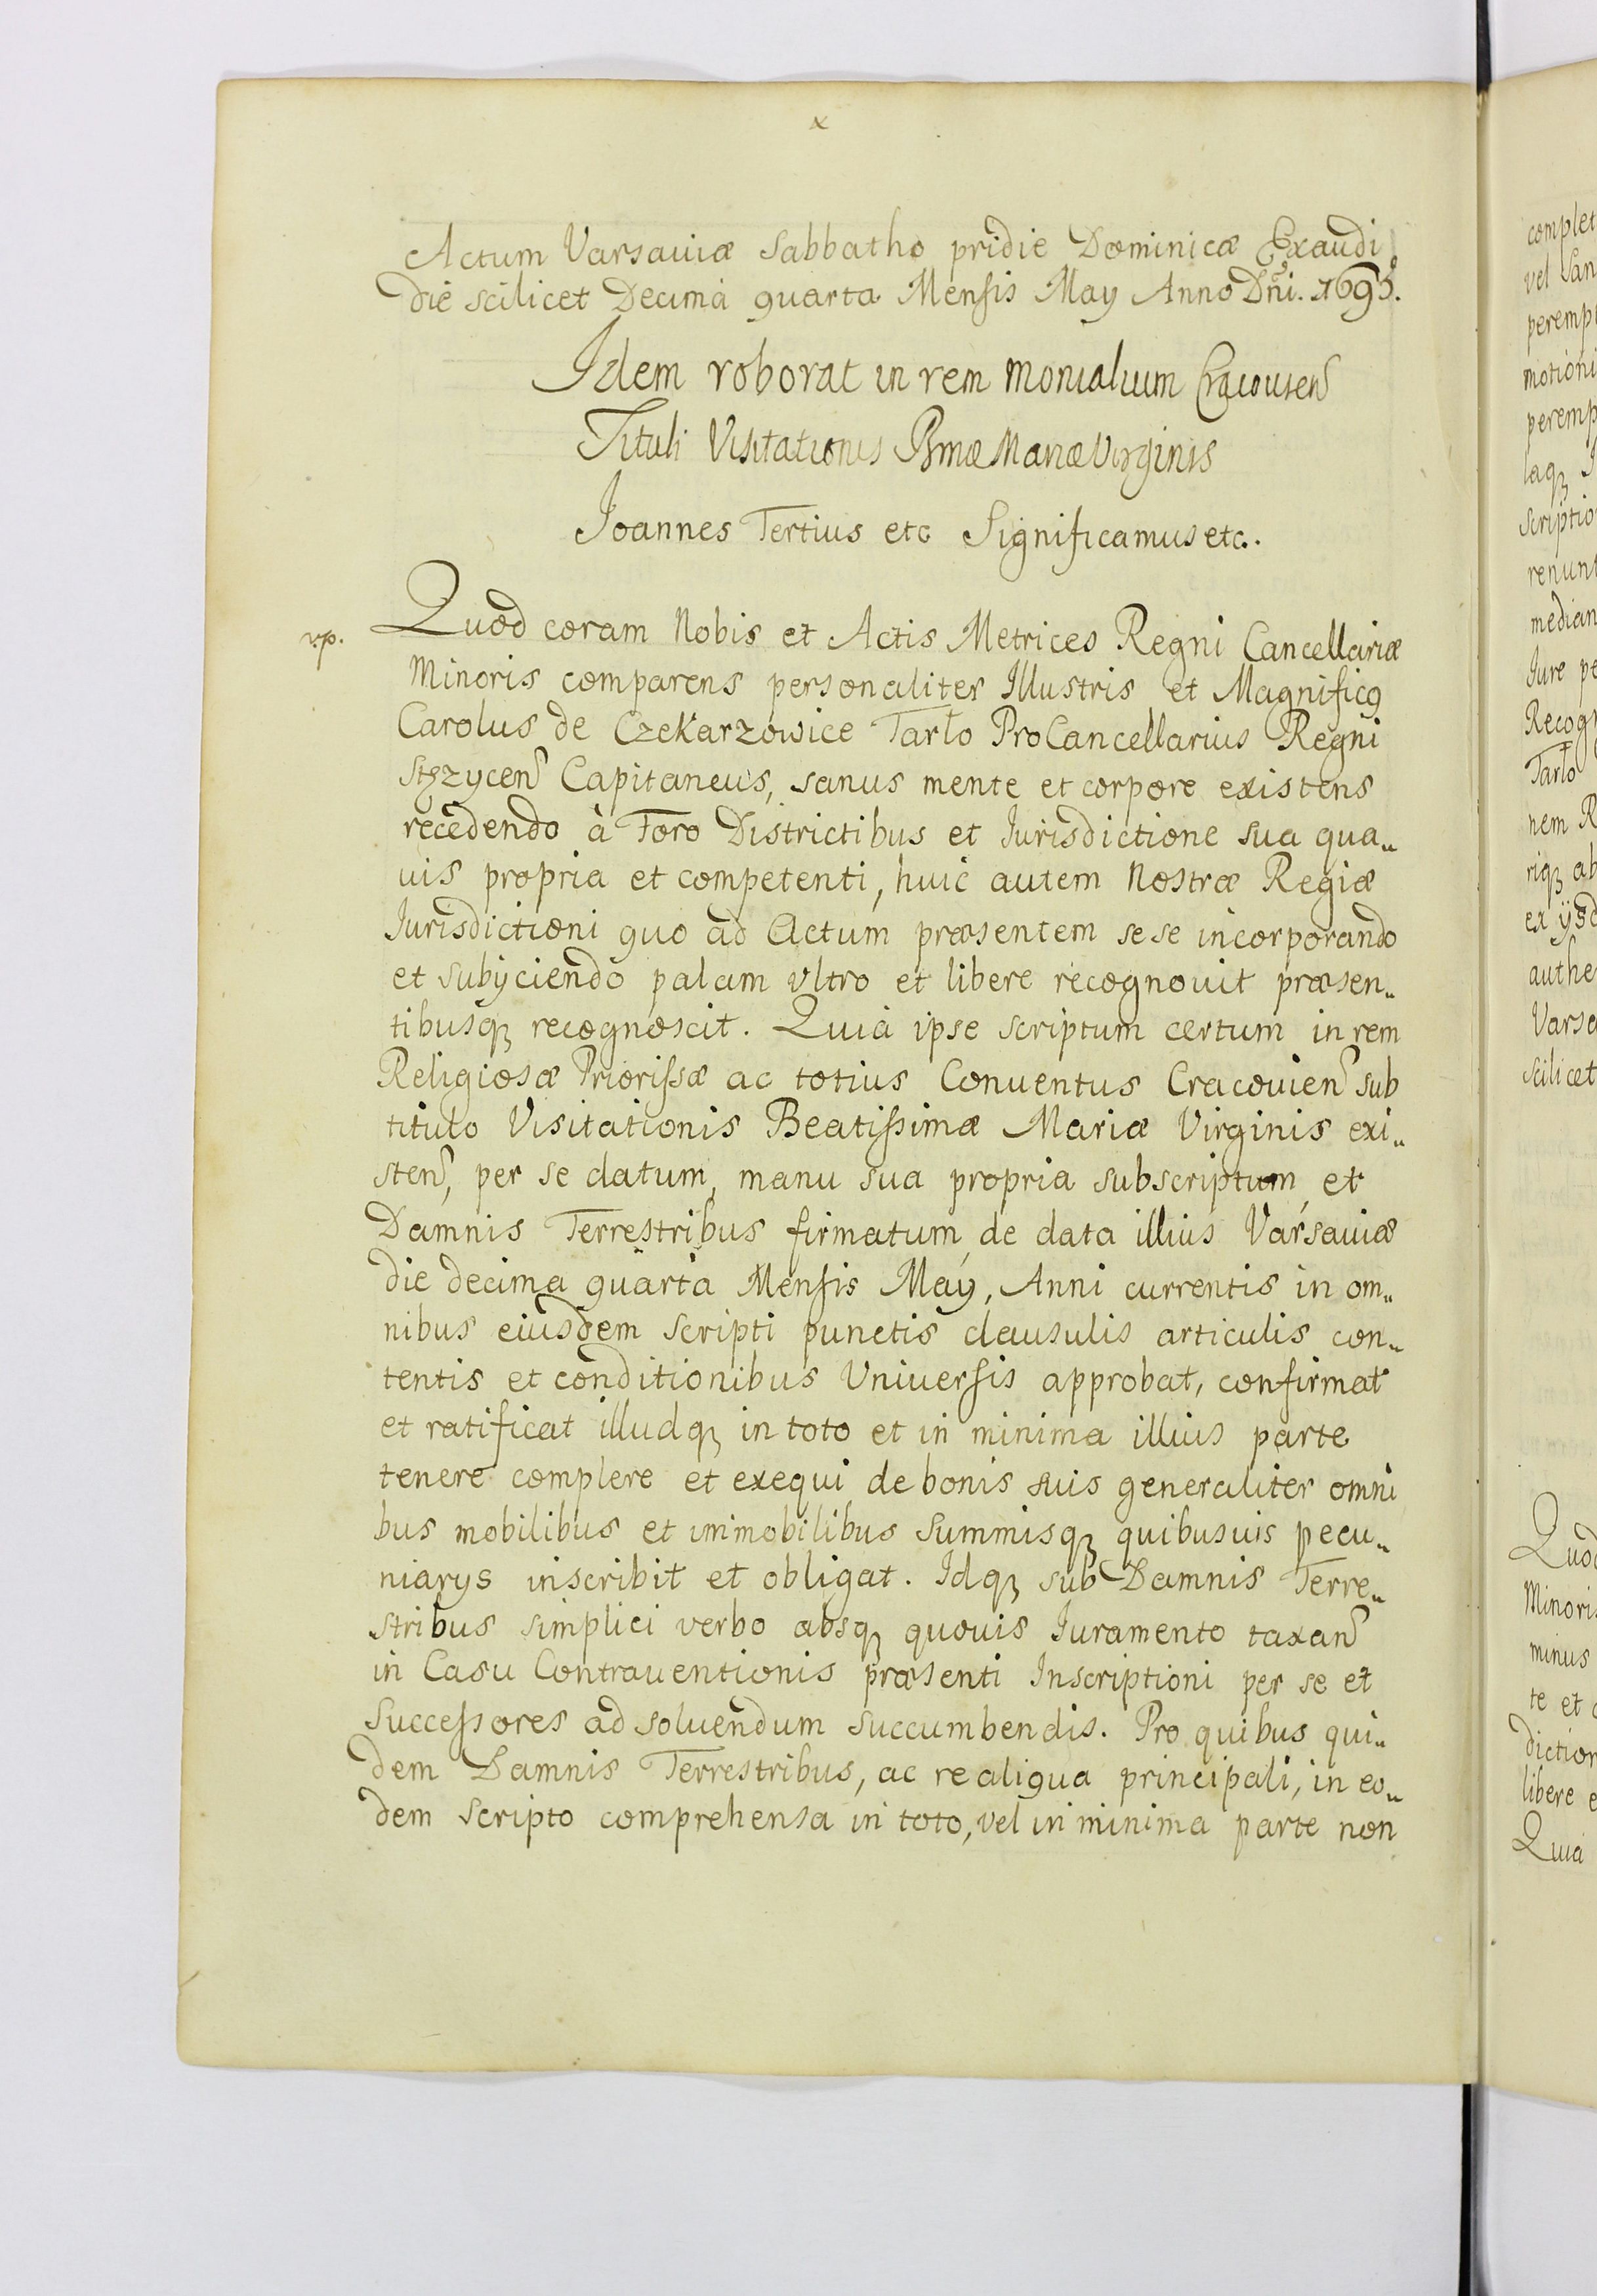 x
Actum Varsauiæ Sabbatho pridie Dominicæ Exaudi
die scilicet Decima quarta Mensis May Anno Dñi. 1695.
Idem roborat in rem Monialium Cracouien
Tituli Visitationis Bmæ Mariæ Virginis
Joannes Tertius etc Significamus etc.
Quod coram Nobis et Actis Metrices Regni Cancellariæ
Minoris comparens personaliter Illustris et Magnificq
Carolus de Czekarzowice Tarło ProCancellarius Regni
Stęzycen Capitaneus, sanus mente et corpore existens
recedendo à Foro Districtibus et Iurisdictione sua qua„
uis propria et competenti, huic autem Nostræ Regiæ
Iurisdictioni quo ad Actum præsentem sese incorporando
et subijciendo palam vltro et libere recognouit præsen„
tibusqȝ recognoscit. Quia ipse scriptum certum in rem
Religiosæ Priorissæ ac totius Conuentus Cracouien sub
titulo Visitationis Beatissimæ Mariæ Virginis exi„
sten, per se datum, manu sua propria subscriptum, et
Damnis Terrestribus firmatum, de data illius Varsauiæ
die decima quarta Mensis May, Anni currentis in om„
nibus eiusdem scripti punctis clausulis articulis con„
tentis et conditionibus Vniuersis approbat, confirmat
et ratificat illudqȝ in toto et in minima illius parte
tenere complere et exequi de bonis suis generaliter omni
bus mobilibus et immobilibus Summisqȝ quibusuis pecu„
niarys inscribit et obligat. Idqȝ sub Damnis Terre„
stribus simplici verbo absqȝ quouis Iuramento taxan
in Casu Contrauentionis præsenti Inscriptioni per se et
Successores ad soluendum succumbendis. Pro quibus qui„
dem Damnis Terrestribus, ac re aliqua principali, in eo„
dem scripto comprehensa in toto, vel in minima parte non
complet
vel
peremp
motioni
peremp
laqȝ
scriptio
renunt
median
Iure pe
Recog
Tarło
nem R
riqȝ ab
ex ijsd
authe
Varsa
scilicet
Quod
Minoris
minus
te et
diction
libere e
Quia